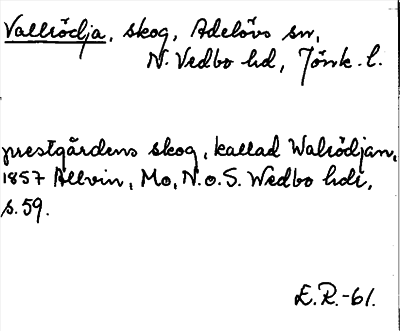 Vallrödja, skog, Adelövs sn,
N. Vedbo hd, Jönk. l.
prestgårdens skog, kallad Walrödjan,
1857 Allvin, Mo, N.o.S. Wedbo hdr,
s.59.
E.R.-61.